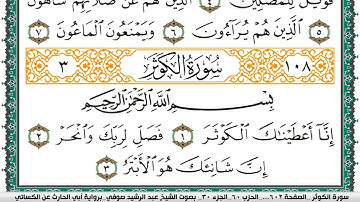 فَوَيْلٌ لِّلْمُصَلِّينَ ٤ ٱلَّذِينَ هُمْ عَن صَلَاتِهِمْ سَاهُونَ
٥ ٱلَّذِينَ هُمْ يُرَآءُونَ ٦ وَيَمْنَعُونَ ٱلْمَاعُونَ ٧
١٠٨ سُورَةُ الكَوْثَرِ ٣
بِسْمِ ٱللَّهِ ٱلرَّحْمَٰنِ ٱلرَّحِيمِ
إِنَّآ أَعْطَيْنَٰكَ ٱلْكَوْثَرَ ١ فَصَلِّ لِرَبِّكَ وَٱنْحَرْ ٢
إِنَّ شَانِئَكَ هُوَ ٱلْأَبْتَرُ ٣
سورة الكوثر_ الصفحة ٦٠٢_... الحزب ٦٠_ الجزء ٣٠_ بصوت الشيخ عبد الرشيد صوفي_ برواية أبي الحارث عن الكسائي